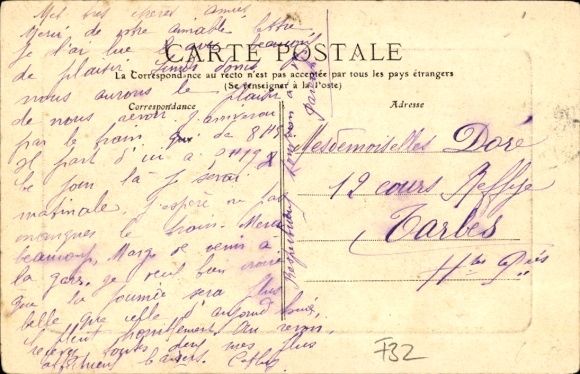 Mes très chères amies
Merci de votre aimable lettre
je l'ai lue avec beaucoup
de plaisir
nous aurons le plaisir
de nous revoir. J'arriverai
par le train de 8H
Il part d'ici à
le jour là je serai
matinale. J'espère ne pas
manquer le train. Merci
beaucoup Margo de venir à
la gare. Je veux bien croire
que la journée sera plus
belle que celle d'aujourd'hui,
il pleut horriblement. Au revoir,
recevez toutes deux mes plus
affectueux baisers.
CARTE POSTALE
La Correspondance au recto n'est pas acceptée par tous les pays étrangers
(Se renseigner à la Poste)
Correspondance
Adresse
Mesdemoiselles Doré
12 cours Reffye
Tarbes
Htes Pyrées
F32